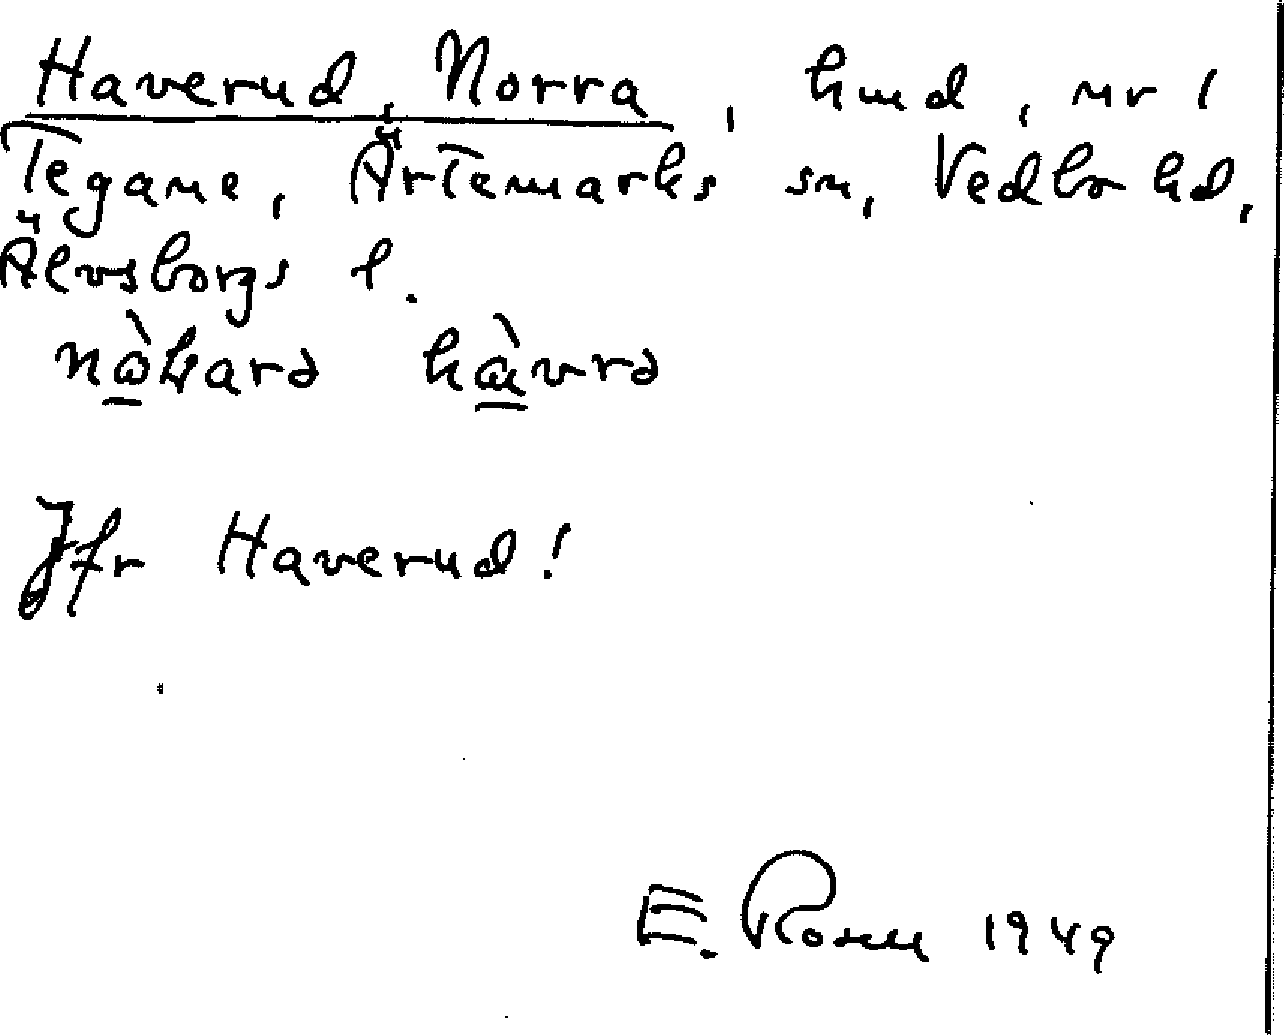 Haverud, Norra, hmd, nr 1
Tegane, Ärtemarks sn, Vedbo hd,
Älvsborgs l.
hàvrə
Jfr Haverud!
E. Rosen 1949